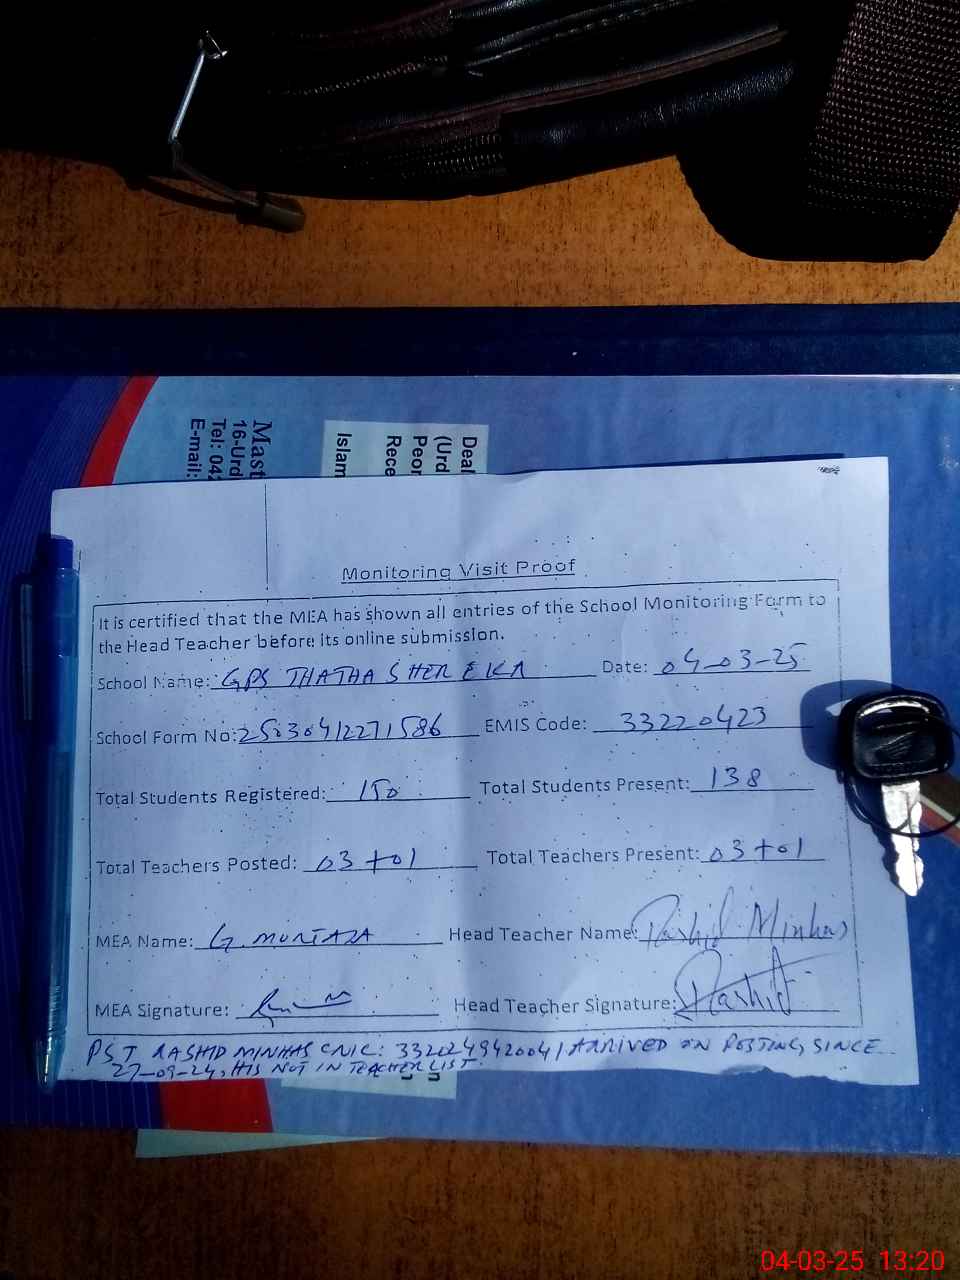 Mast
16-Urd
Tel: 042
E-mail:
Deal
(Urd
Peor
Rece
Islam
Monitoring Visit Proof
It is certified that the MEA has shown all entries of the School Monitoring Form to
the Head Teacher before its online submission.
School Name: GPS THATHA SHER EKA Date: 04-03-25
School Form No: 25030412271586 EMIS Code: 33220423
Total Students Registered: 150 Total Students Present: 138
Total Teachers Posted: 03+01 Total Teachers Present: 03+01
MEA Name: G. MURTAZA Head Teacher Name: Rashid Minhas
MEA Signature: Head Teacher Signature: Rashid
PST RASHID MINHAS CNIC: 3320249420041 ARRIVED ON POSTING SINCE
27-09-24, HIS NOT IN TEACHER LIST.
04-03-25 13:20